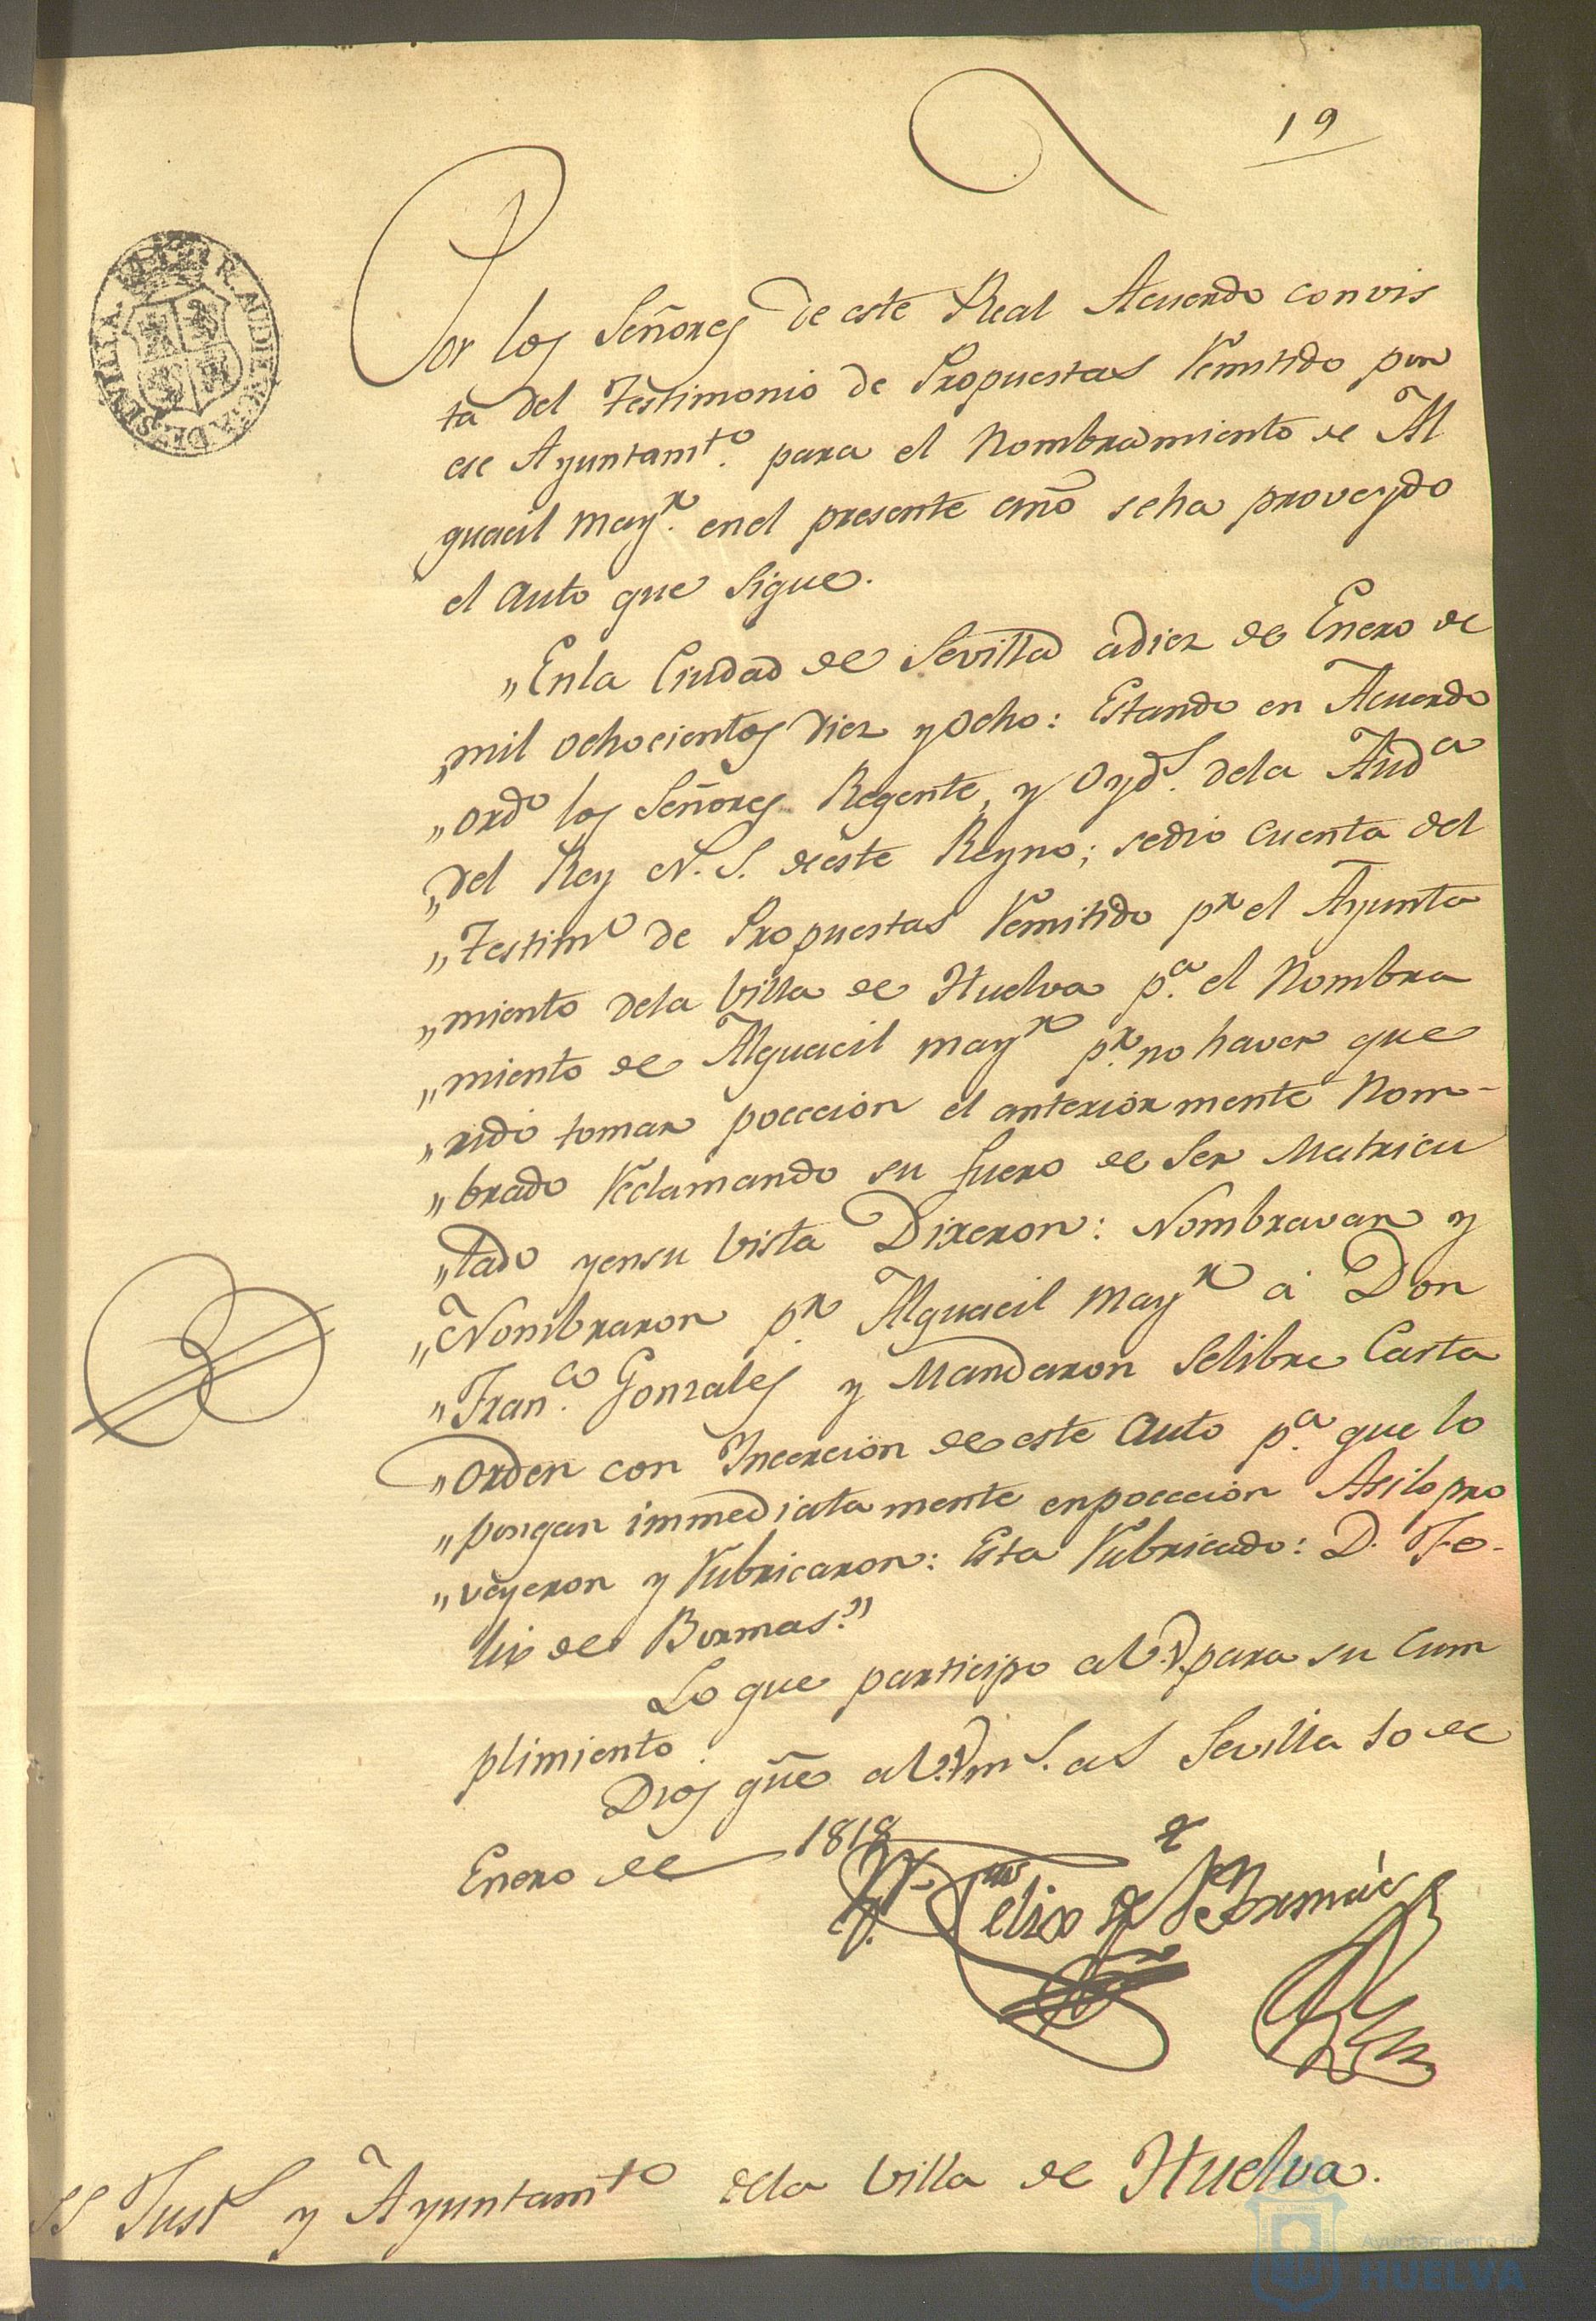 19
R. AUDIENCIA DE SEVILLA
Por los Señores de este Real Acuerdo con vis
ta del Testimonio de Propuestas Remitido por
ese Ayuntamto. para el Nombramiento de Al
guacil mayr. en el presente año se ha proveydo
el auto que sigue.
„ En la Ciudad de Sevilla a diez de Enero de
„ mil ochocientos diez y ocho: Estando en Acuerdo
„ ordo los Señores Regente, y Oyds. de la Auda
„ del Rey N. S. de este Reyno; se dio cuenta del
„ Testimo de Propuestas Remitido pr el Ayunta
„ miento de la Villa de Huelva pa. el Nombra
„ miento de Alguacil mayr pr. no haver que
„ rido tomar poccecion el anteriormente Nom-
„ brado Reclamando su fuero de ser Matricu
„ lado y en su vista Dixeron: Nombravan y
„ Nombraron pr. Alguacil mayr à Don
„ Franco. Gonzales y Mandaron se libre Carta
„ orden con Incercion de este auto pa. que lo
„ pongan immediatamente en poccecion Asi lo pro
„ veyeron y Rubricaron: Esta Rubricado: D. Fe-
lix de Bormas."
Lo que participo a V.V. para su cum
plimiento.
Dios gũe a V.Vms. as Sevilla 10 de
Enero de 1818
Felix de Bormas
SS Justa y Ayuntamto de la Villa de Huelva.
Ayuntamiento de
HUELVA